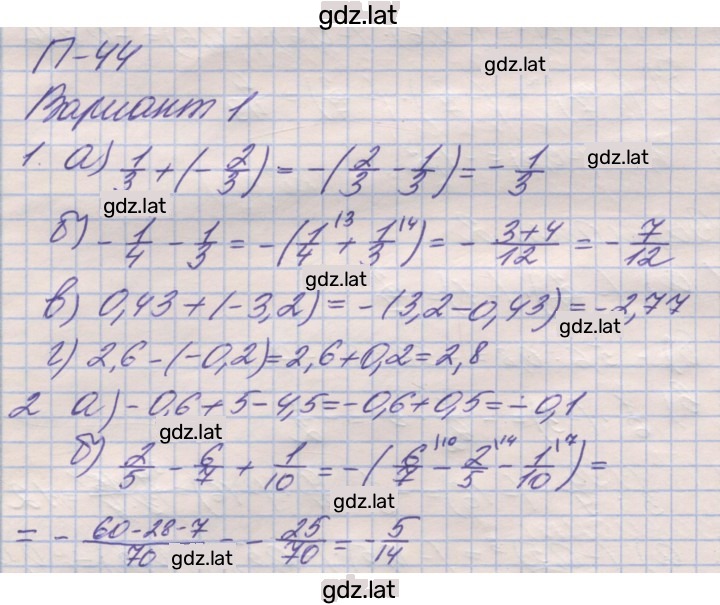 gdz.lat
П-44
gdz.lat
Вариант 1
1. а) 1/3 + (- 2/3) = -(2/3 - 1/3) = - 1/3
gdz.lat
gdz.lat
б) - 1/4 - 1/3 = -(1/4 |3 + 1/3 |4) = - 3+4/12 = - 7/12
gdz.lat
в) 0,43 + (-3,2) = -(3,2-0,43) = -2,77
gdz.lat
г) 2,6 - (-0,2) = 2,6+0,2 = 2,8
2 а) -0,6+5-4,5 = -0,6+0,5 = -0,1
gdz.lat
б) 2/5 - 6/7 + 1/10 = -(6/7 |10 - 2/5 |14 - 1/10 |7) =
gdz.lat
= - 60-28-7/70 - - 25/70 = - 5/14
gdz.lat
gdz.lat